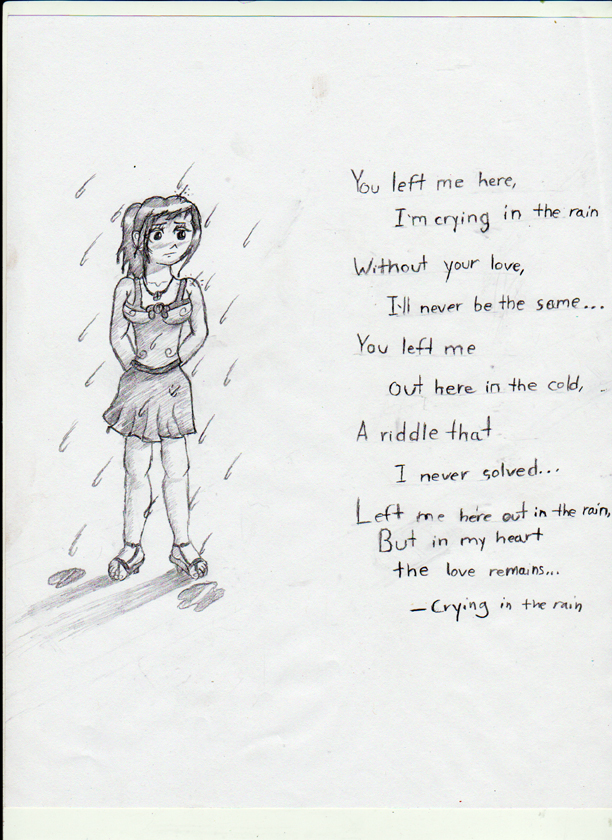 You left me here,
I'm crying in the rain
Without your love,
I'll never be the same...
You left me
out here in the cold,
A riddle that
I never solved...
Left me here out in the rain,
But in my heart
the love remains...
—Crying in the rain